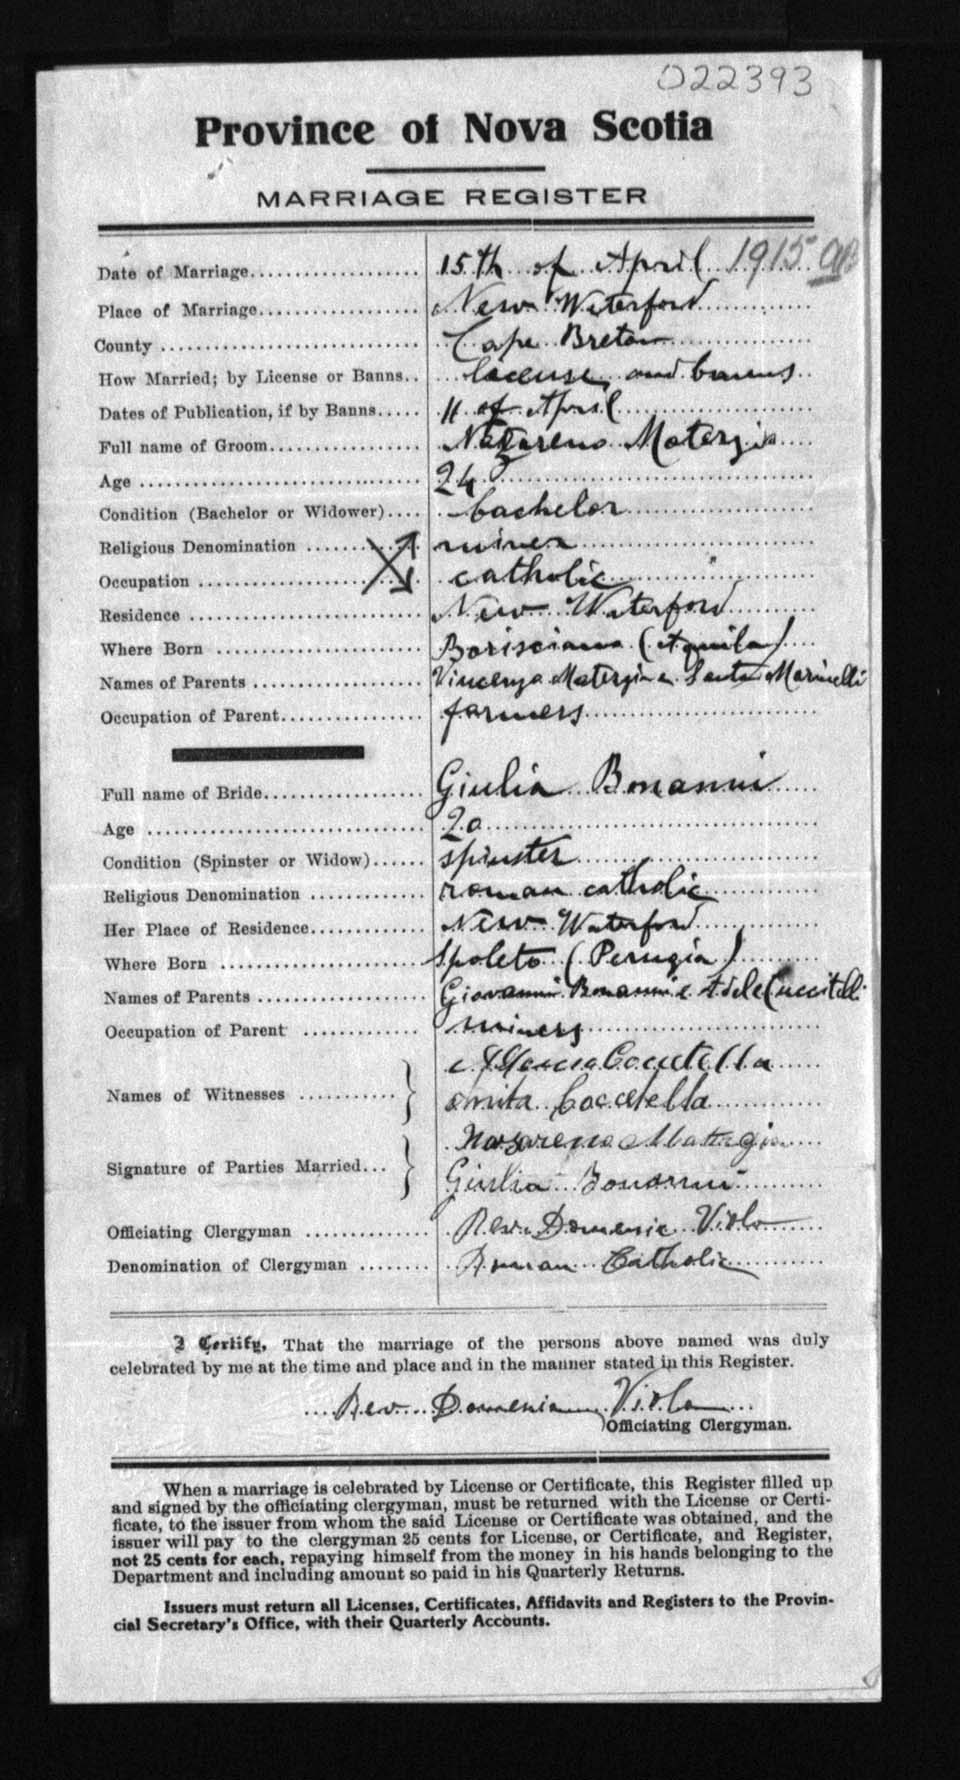 022393
Province of Nova Scotia
MARRIAGE REGISTER
Date of Marriage 15th of April 1915
Place of Marriage New Waterford
County Cape Breton
How Married; by License or Banns license and banns
Dates of Publication, if by Banns 11 of April
Full name of Groom Nazareno Matergia
Age 24
Condition (Bachelor or Widower) bachelor
Religious Denomination miner
Occupation catholic
Residence New Waterford
Where Born (Aquila)
Names of Parents Vincenzo Matergia e Santa Marinelli
Occupation of Parent farmers
Full name of Bride Giulia Bonanni
Age 20
Condition (Spinster or Widow) spinster
Religious Denomination roman catholic
Her Place of Residence New Waterford
Where Born Spoleto (Perugia)
Names of Parents Giovanni Bonanni e Adele Cuccitelli
Occupation of Parent miners
Names of Witnesses Coccetella
Anita Coccetella
Signature of Parties Married Nazareno Matergia
Giulia Bonanni
Officiating Clergyman Rev. Domenic Viola
Denomination of Clergyman Roman Catholic
I Certify, That the marriage of the persons above named was duly
celebrated by me at the time and place and in the manner stated in this Register.
Rev. Domenic Viola
Officiating Clergyman.
When a marriage is celebrated by License or Certificate, this Register filled up
and signed by the officiating clergyman, must be returned with the License or Certi-
ficate, to the issuer from whom the said License or Certificate was obtained, and the
issuer will pay to the clergyman 25 cents for License, or Certificate, and Register,
not 25 cents for each, repaying himself from the money in his hands belonging to the
Department and including amount so paid in his Quarterly Returns.
Issuers must return all Licenses, Certificates, Affidavits and Registers to the Provin-
cial Secretary's Office, with their Quarterly Accounts.